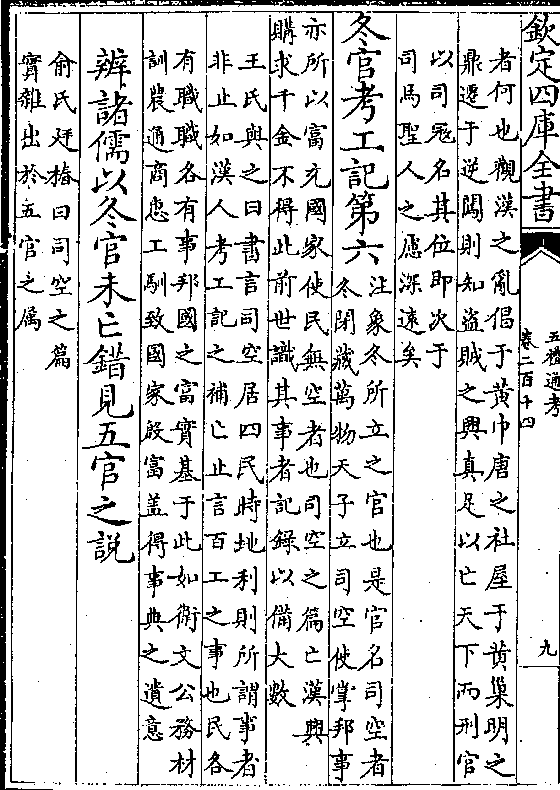 欽定四庫全書
五禮通考
卷二百十四
九
者何也觀漢之亂倡于黄巾唐之社屋于黄巢明之
鼎遷于逆闖則知盜賊之興真足以亡天下而刑官
以司冦名其位即次于
司馬聖人之慮深遠矣
冬官考工記第六
注象冬所立之官也是官名司空者
冬閉藏萬物天子立司空使掌邦事
亦所以富充國家使民無空者也司空之篇亡漢興
購求千金不得此前世識其事者記録以備大數
王氏與之曰書言司空居四民時地利則所謂事者
非止如漢人考工記之補亡止言百工之事也民各
有職職各有事邦國之富實基于此如衛文公務材
訓農通商惠工馴致國家殷富盖得事典之遺意
辨諸儒以冬官未亡錯見五官之説
俞氏廷椿曰司空之篇
實雜出於五官之屬